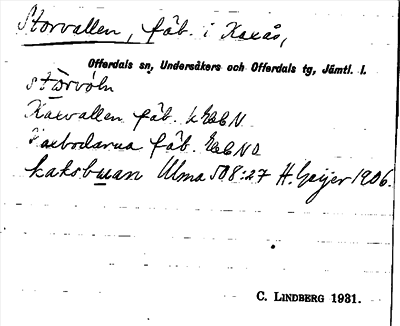 Storvallen, fäb. i Kaxås,
Offerdals sn, Undersåkers och Offerdals tg, Jämtl. l.
störvòln
Kaxvallen fäb. k
Kaxbodarna fäb.
kaksbuan Ulma 508:27 H. Geijer 1906.
C. LINDBERG 1931.